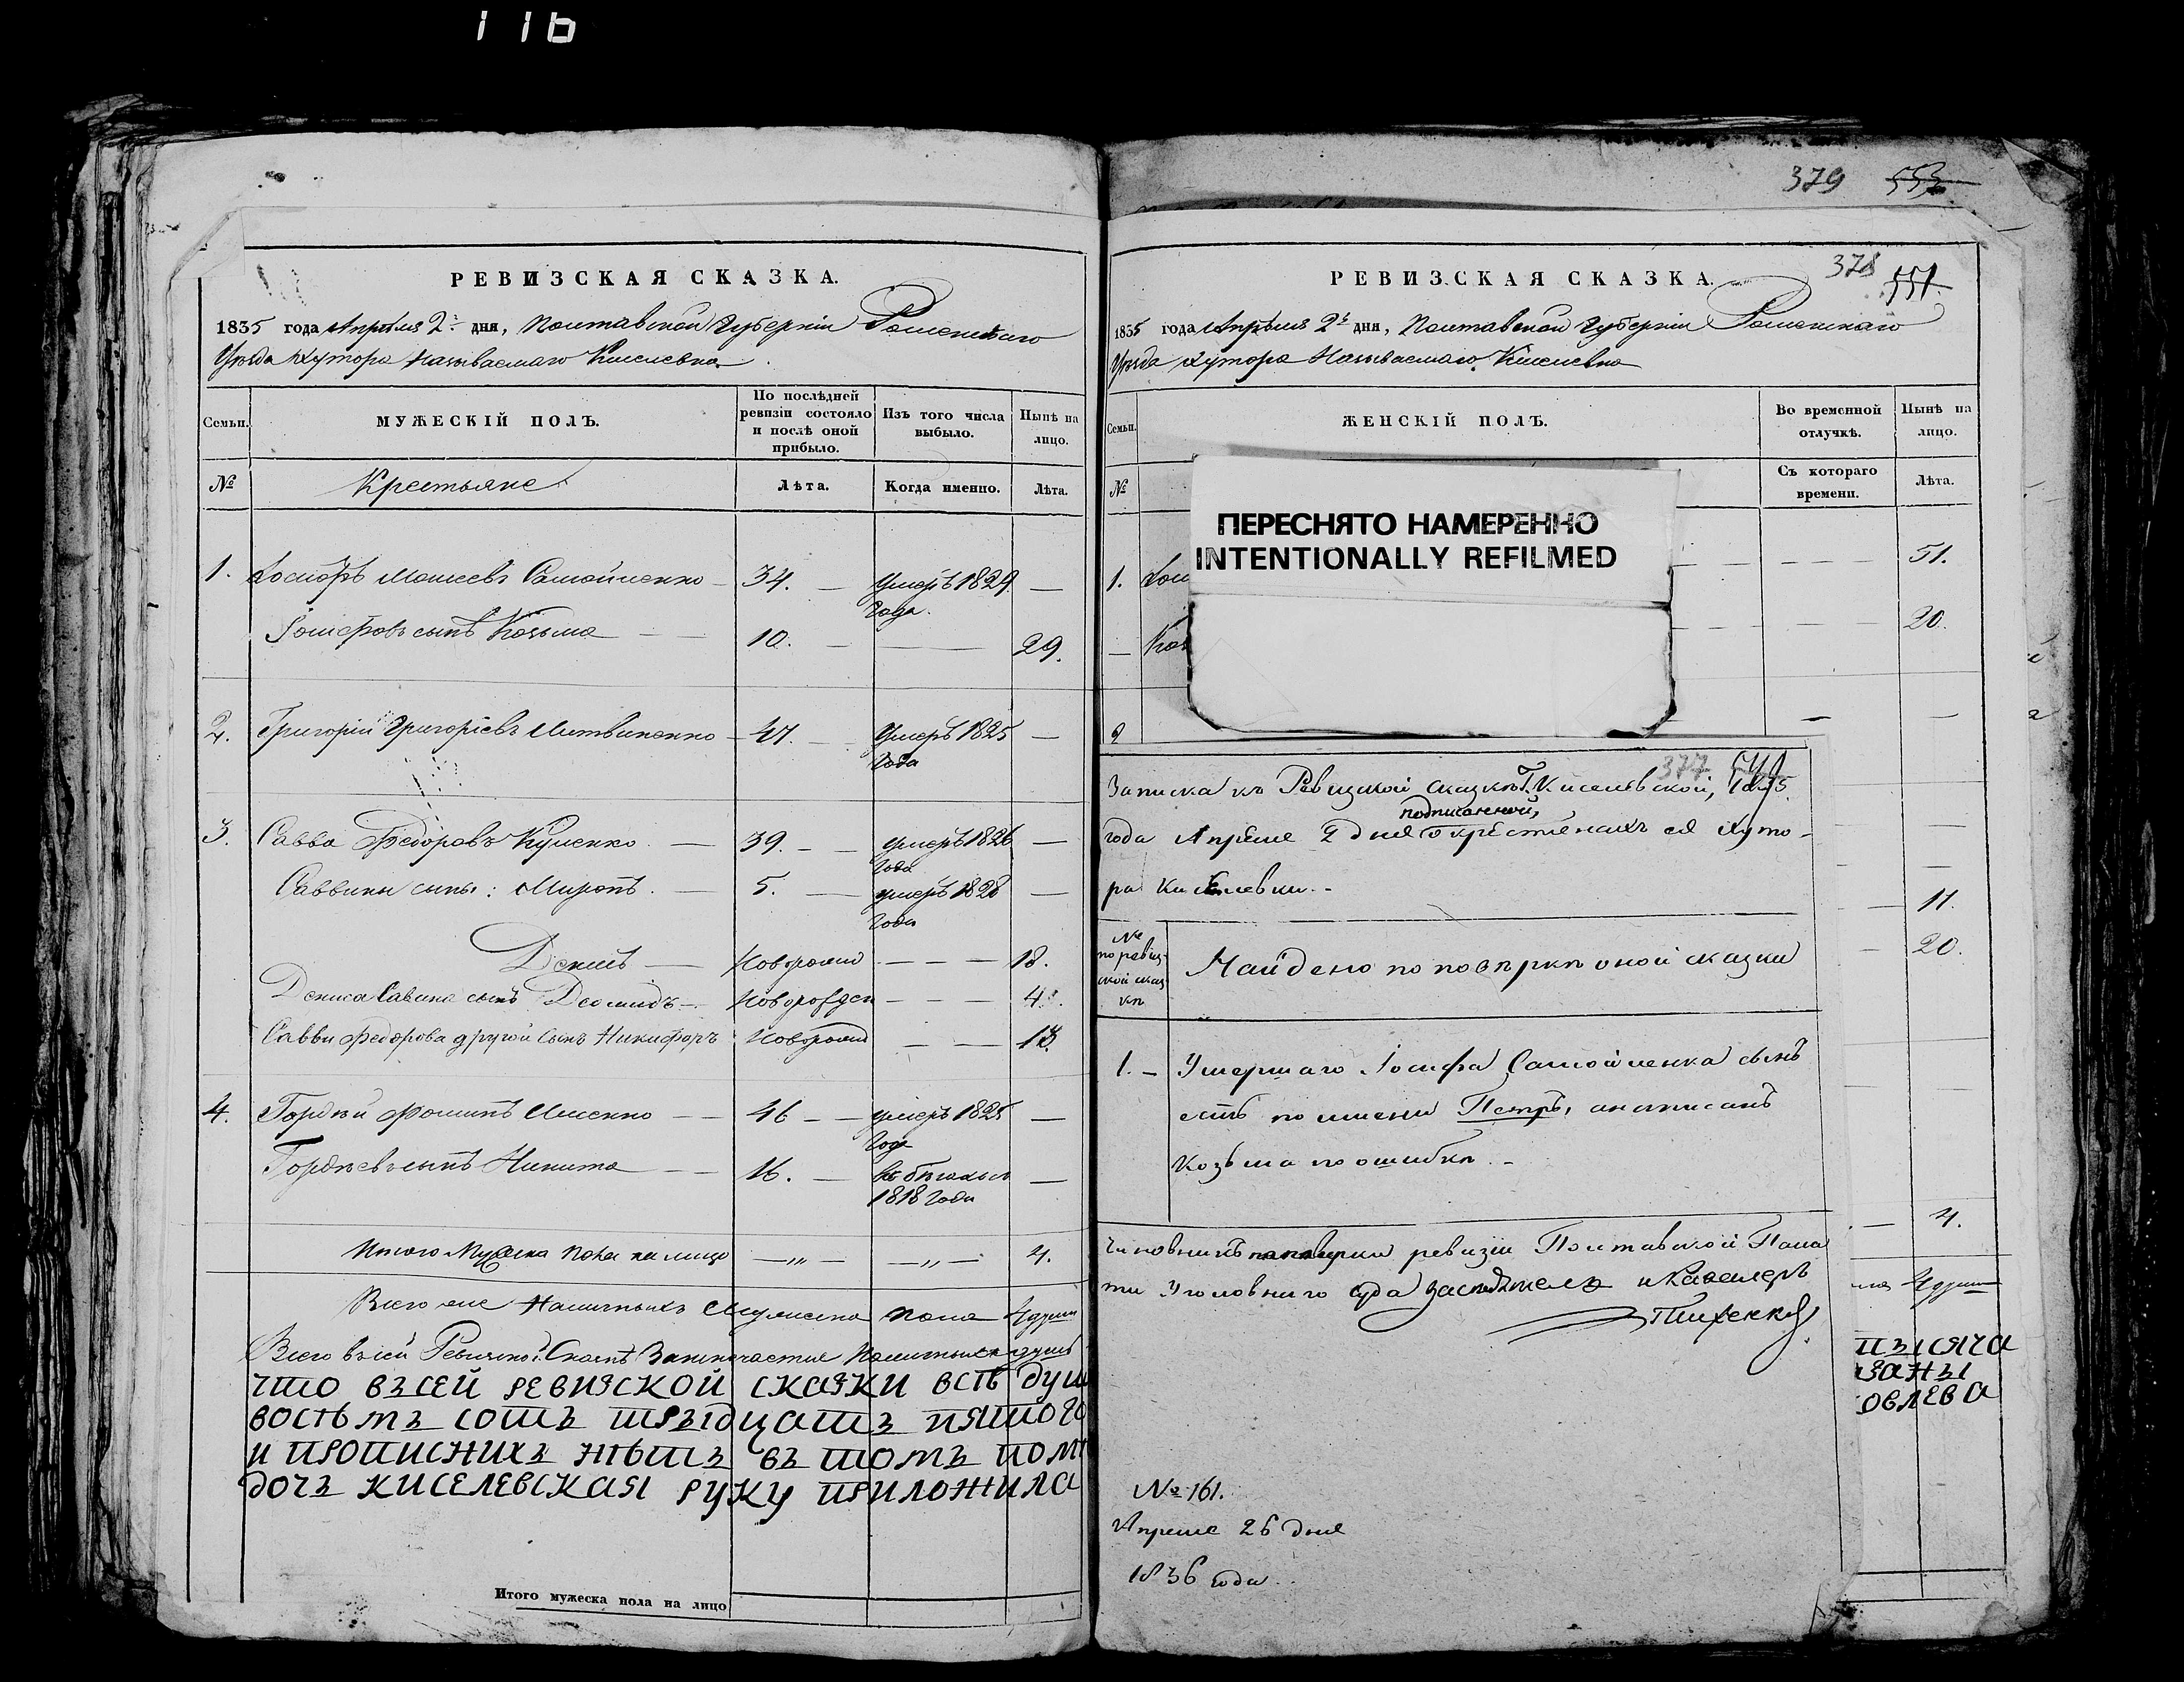 116
РЕВИЗСКАЯ СКАЗКА.
1835 года Апрѣля 2 дня, Полтавской Губерніи Роменскаго
Уѣзда Хутора Называемаго Киселевка
Семьи.
МУЖЕСКІЙ ПОЛЪ.
По послѣдней ревизіи состояло и послѣ оной прибыло.
Изъ того числа выбыло.
Нынѣ на лицо.
№
Крестьяне
Лѣта.
Когда именно.
Лѣта.
1. Іосифъ Самойленко 34. умеръ 1829 года
Іосифовъ сынъ Козьма 10. 29.
2. Григорій Григоріевъ Литвиненко 47. Умеръ 1825 года
3. Савва Федоровъ Куценко 39. умеръ 1826 года
Саввины сыны: Миронъ 5. умеръ 1828 года
Денисъ Новорожд 18.
Дениса Савина сынъ Деомидъ Новорожден 4.
Саввы Федорова другой сынъ Никифоръ Новорожд 13.
4. Гордѣй Фоминъ 46 умеръ 1825 года
Гордѣевъ сынъ Никита 16. въ бѣгахъ съ 1818 года
Итого Мужеска Пола на лицо 4.
Всего Наличныхъ Мужеска пола 4 души
Всего въ сей Ревизской Сказкѣ наличныхъ душъ
что въ сей ревизской сказки всть душ
востьмъ сотъ трыдцатъ пятого
и прописнихъ нѣтъ въ томъ пом
дочъ киселевская руку приложила
Итого мужеска пола на лицо
379 553
РЕВИЗСКАЯ СКАЗКА.
378 551.
1835 года Апрѣля 2 дня, Полтавской Губерніи Роменскаго
Уѣзда Хутора Называемаго Киселевка
Семьи.
ЖЕНСКІЙ ПОЛЪ.
Во временной отлучкѣ.
Нынѣ на лицо.
№
Съ котораго времени.
Лѣта.
ПЕРЕСНЯТО НАМЕРЕННО
INTENTIONALLY REFILMED
1. 51.
20.
2
11.
20.
4.
377
Записка къ Ревизской сказкѣ Г. Киселевской, 1835
подписанной,
года Апреля 2 дня о крестьянахъ ея хуто-
ра Киселевки.
№ по ревизской сказкѣ
Найдено по повѣркѣ оной сказки
1. Умершаго Іосифа Самойленка сынъ
есть по имени Петръ, а написанъ
Козьма по ошибкѣ.
Чиновникъ поверки ревизіи Полтавской Пала
ты Уголовнаго суда заседатель и Кавалеръ
4 души
тысяча
заны
овлева
№ 161.
Апреля 26 дня
1836 года